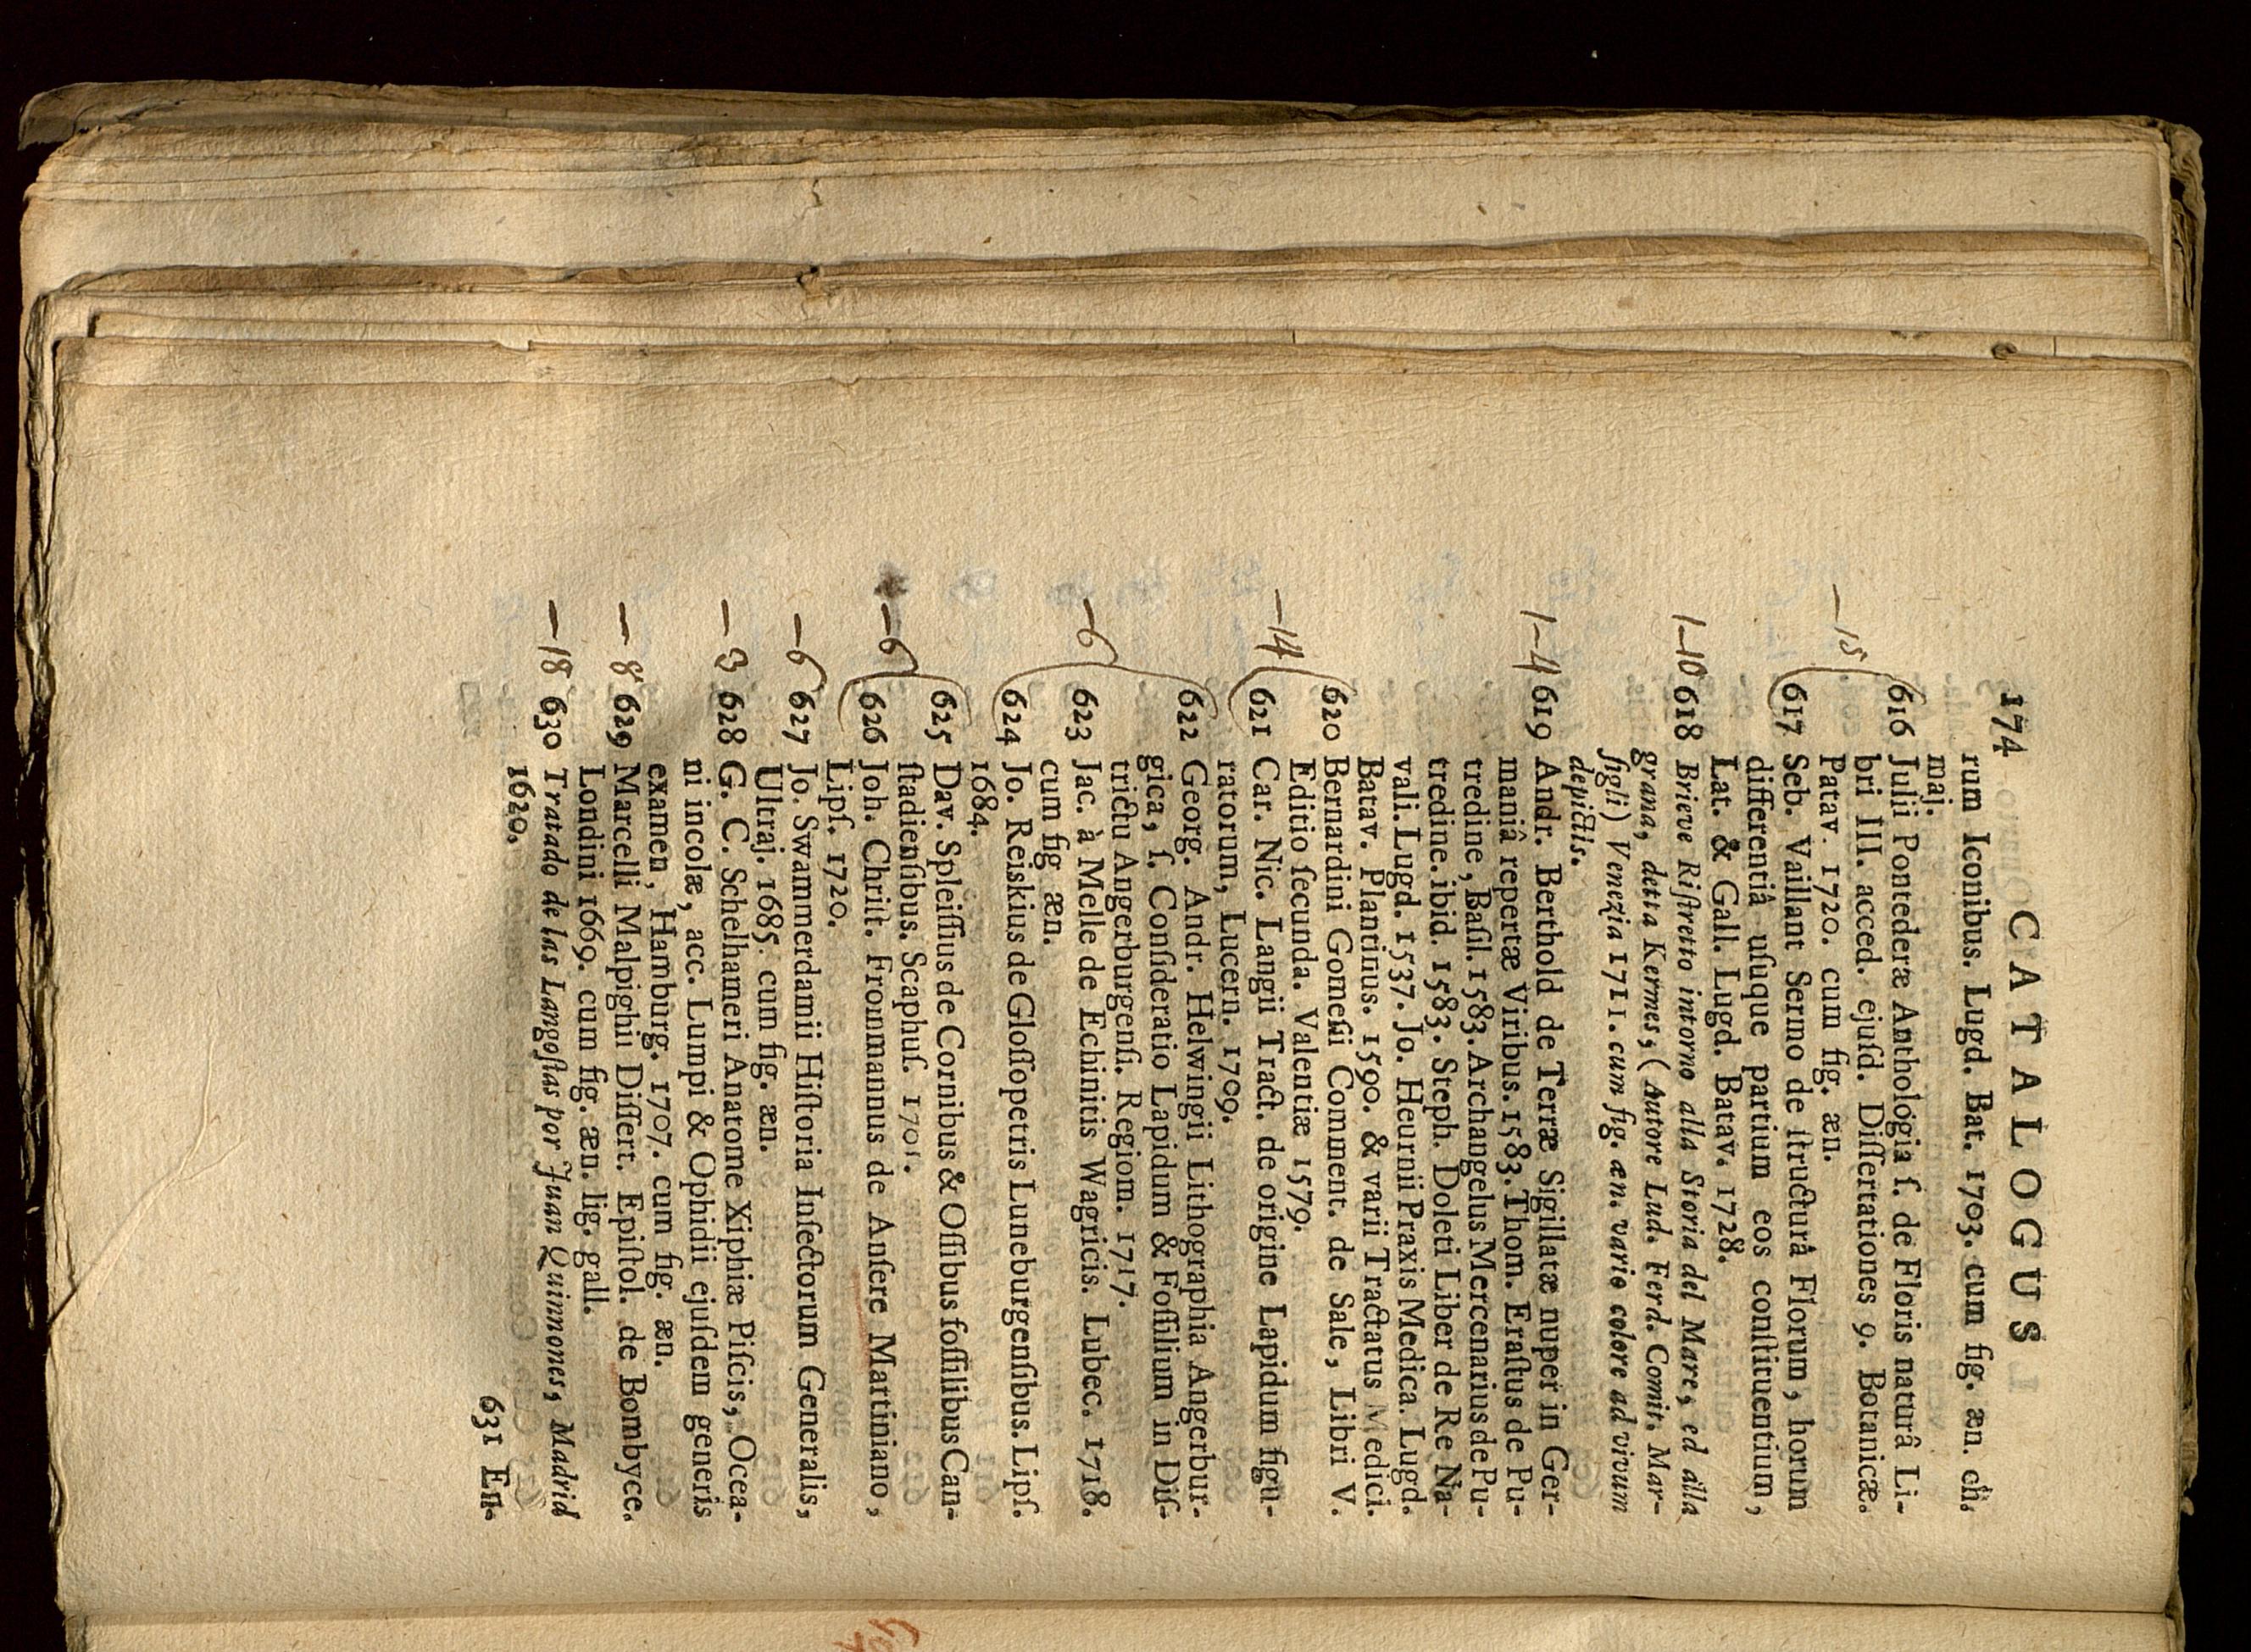 174 CATALOGUS
rum Iconibus. Lugd. Bat. 1703. cum fig. æn. ch.
maj.
616 Julii Pontederæ Anthologia ſ. de Floris naturâ Li-
bri III. acced. ejuſd. Diſſertationes 9. Botanicæ.
Patav. 1720. cum fig. æn.
—15
617 Seb. Vaillant Sermo de ſtructurâ Florum, horum
differentiâ uſuque partium eos conſtituentium,
Lat. & Gall. Lugd. Batav. 1728.
1—10 618 Brieve Riſtretto intorno alla Storia del Mare, ed alla
grana, detta Kermes, (Autore Lud. Ferd. Comit. Mar-
ſigli) Venezia 1711. cum fig. æn. vario colore ad vivum
depictis.
1—4 619 Andr. Berthold de Terræ Sigillatæ nuper in Ger-
maniâ repertæ Viribus. 1583. Thom. Eraſtus de Pu-
tredine, Baſil. 1583. Archangelus Mercenarius de Pu-
tredine. ibid. 1583. Steph. Doleti Liber de Re Na-
vali. Lugd. 1537. Jo. Heurnii Praxis Medica. Lugd.
Batav. Plantinus. 1590. & varii Tractatus Medici.
620 Bernardini Gomeſii Comment. de Sale, Libri V.
Editio ſecunda. Valentiæ 1579.
—14
621 Car. Nic. Langii Tract. de origine Lapidum figu-
ratorum, Lucern. 1709.
622 Georg. Andr. Helwingii Lithographia Angerbur-
gica, ſ. Conſideratio Lapidum & Foſſilium in Diſ-
trictu Angerburgenſi. Regiom. 1717.
—6
623 Jac. à Melle de Echinitis Wagricis. Lubec. 1718.
cum fig æn.
624 Jo. Reiskius de Gloſſopetris Luneburgenſibus. Lipſ.
1684.
625 Dav. Spleiſſius de Cornibus & Oſſibus foſſilibus Can-
ſtadienſibus. Scaphuſ. 1701.
—6
626 Joh. Chriſt. Frommannus de Anſere Martiniano,
Lipſ. 1720.
—6 627 Jo. Swammerdamii Hiſtoria Inſectorum Generalis,
Ultraj. 1685. cum fig. æn.
—3 628 G. C. Schelhameri Anatome Xiphiæ Piſcis, Ocea-
ni incolæ, acc. Lumpi & Ophidii ejuſdem generis
examen, Hamburg. 1707. cum fig. æn.
—8 629 Marcelli Malpighii Diſſert. Epiſtol. de Bombyce.
Londini 1669. cum fig. æn. lig. gall.
—18 630 Tratado de las Langoſtas por Juan Quinnones, Madrid
1620.
631 En-